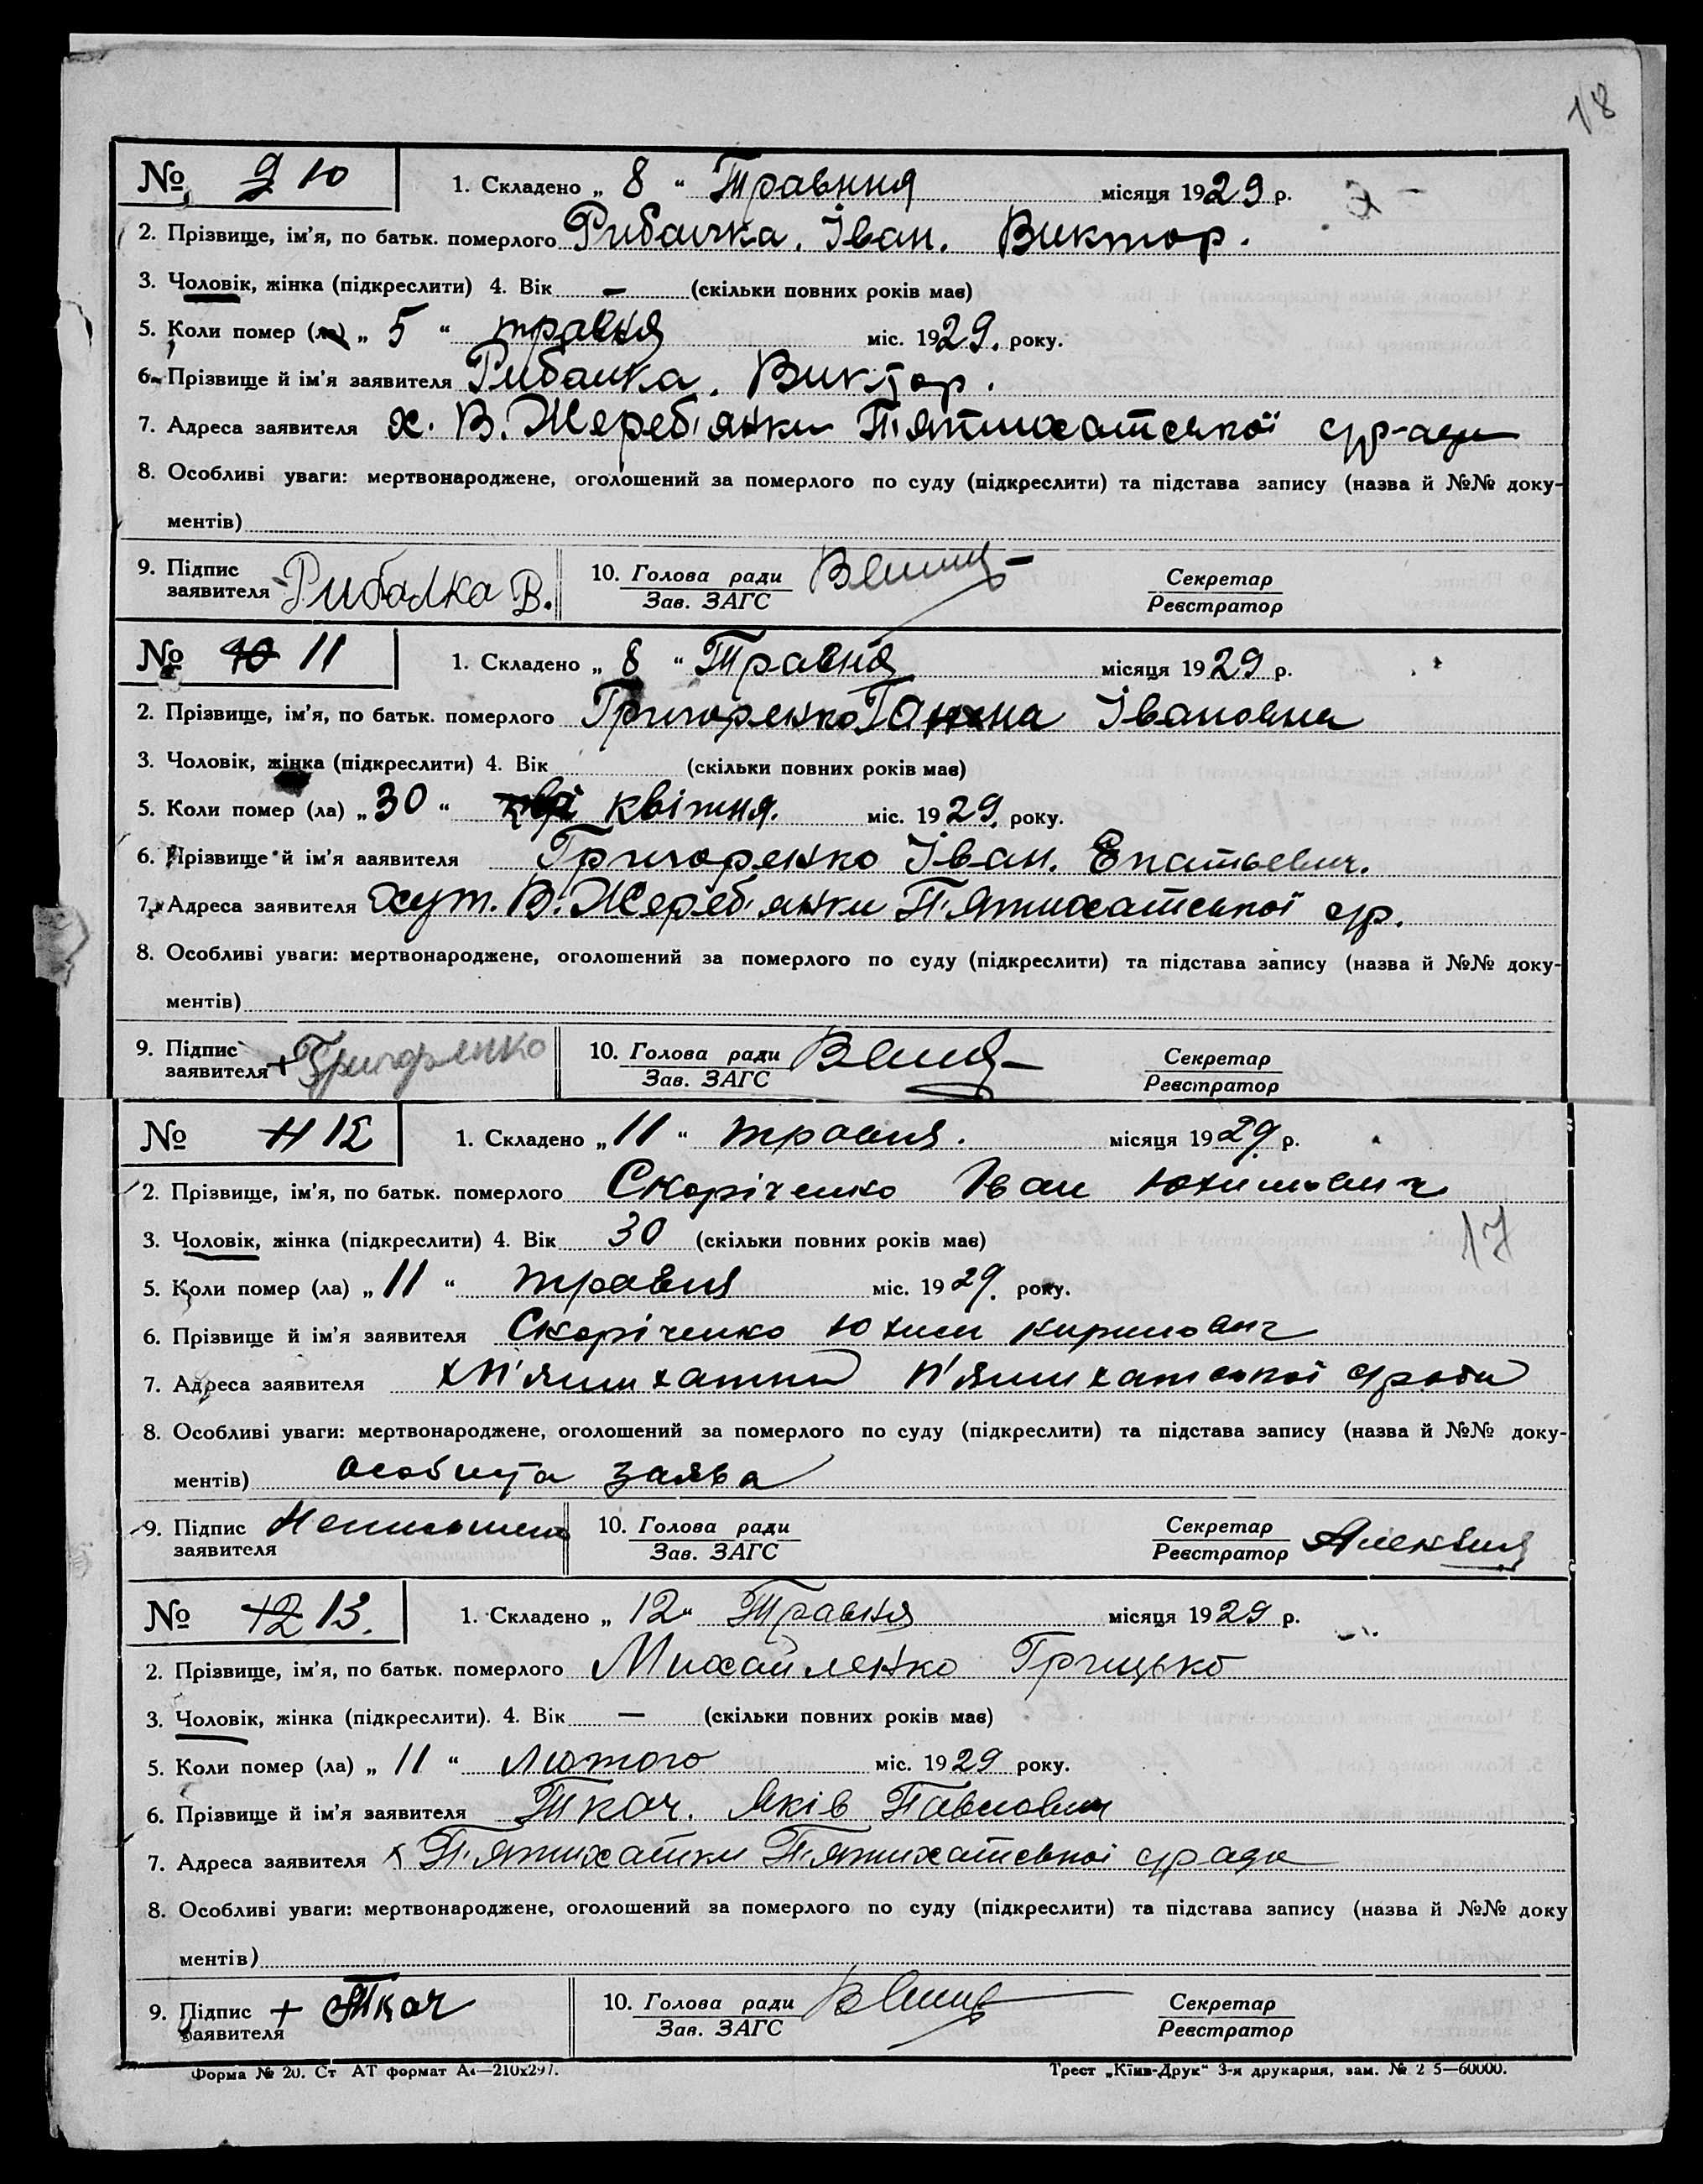 18
№ 9 10 1. Складено „ 8 “ Травння місяця 1929 р.
2. Прізвище, ім'я, по батьк. померлого Рибалка. Іван. Виктор.
3. Чоловік, жінка (підкреслити) 4. Вік — (скільки повних років має)
5. Коли помер (ла) „ 5 “ травня міс. 1929. року.
6. Прізвище й ім'я заявителя Рибалка. Виктор.
7. Адреса заявителя х. В. Жереб'янки П'ятихатської
8. Особливі уваги: мертвонароджене, оголошений за померлого по суду (підкреслити) та підстава запису (назва й №№ доку-
ментів)
9. Підпис заявителя Рибалка В. 10. Голова ради Зав. ЗАГС Секретар Реєстратор
№ 10 11 1. Складено „ 8 “ Травня місяця 1929 р.
2. Прізвище, ім'я, по батьк. померлого Григоренко Ганна Івановна
3. Чоловік, жінка (підкреслити) 4. Вік (скільки повних років має)
5. Коли помер (ла) „ 30 “ кві квітня. міс. 1929. року.
6. Прізвище й ім'я заявителя Григоренко Іван. Епатьевич.
7. Адреса заявителя хут. В. Жереб'янки П'ятихатської ср.
8. Особливі уваги: мертвонароджене, оголошений за померлого по суду (підкреслити) та підстава запису (назва й №№ доку-
ментів)
9. Підпис заявителя + Григоренко 10. Голова ради Зав. ЗАГС Секретар Реєстратор
№ 11 12 1. Складено „ 11 “ травня. місяця 1929 р.
2. Прізвище, ім'я, по батьк. померлого Скоріченко Іван Юхимович
17
3. Чоловік, жінка (підкреслити) 4. Вік 30 (скільки повних років має)
5. Коли помер (ла) „ 11 “ травня міс. 1929. року.
6. Прізвище й ім'я заявителя Скоріченко Юхим Кирилович
7. Адреса заявителя х П'ятихатки П'ятихатської сради
8. Особливі уваги: мертвонароджене, оголошений за померлого по суду (підкреслити) та підстава запису (назва й №№ доку-
ментів) особиста заява
9. Підпис заявителя 10. Голова ради Зав. ЗАГС Секретар Реєстратор
№ 12 13. 1. Складено „ 12 “ Травня місяця 1929 р.
2. Прізвище, ім'я, по батьк. померлого Михайленко Грицько
3. Чоловік, жінка (підкреслити). 4. Вік — (скільки повних років має)
5. Коли помер (ла) „ 11 “ лютого міс. 1929 року.
6. Прізвище й ім'я заявителя Ткач. Яків Павлович
7. Адреса заявителя х П'ятихатки П'ятихатської срада
8. Особливі уваги: мертвонароджене, оголошений за померлого по суду (підкреслити) та підстава запису (назва й №№ доку
ментів)
9. Підпис заявителя + Ткач 10. Голова ради Зав. ЗАГС Секретар Реєстратор
Форма № 20. Ст АТ формат А4—210х297. Трест „Київ-Друк“ 3-я друкарня, зам. № 2 5—60000.